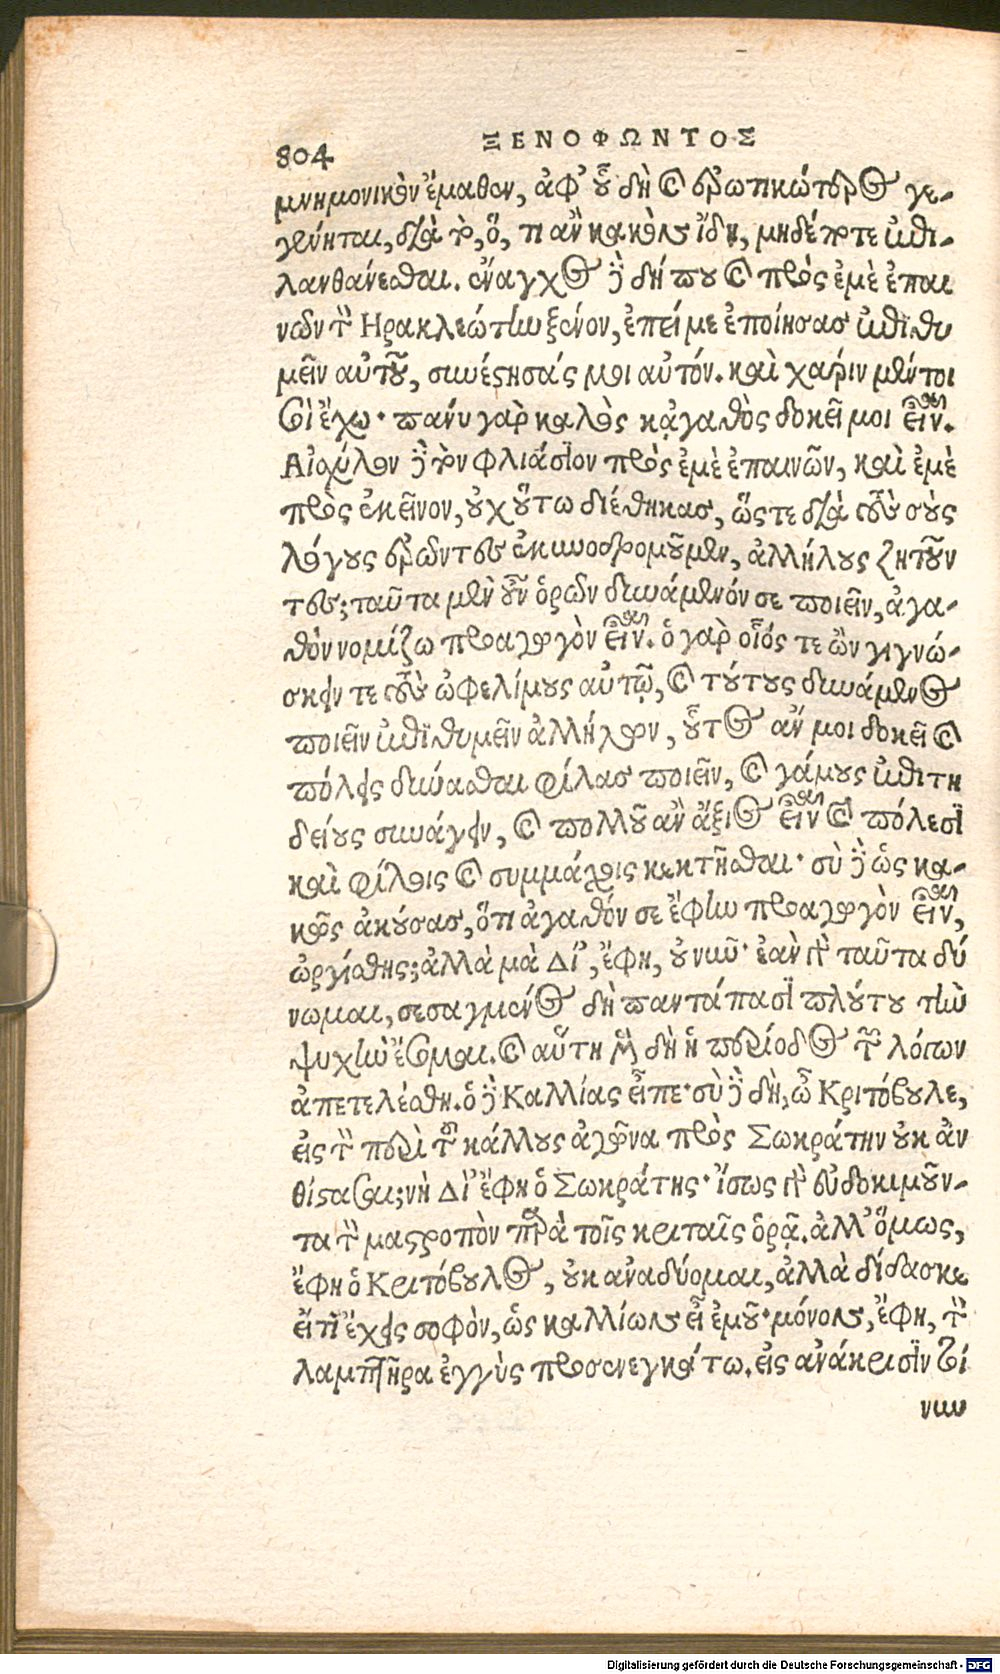 804 ΞΕΝΟΦΩΝΤΟΣ
μνημονικὸν ἔμαθεν, ἀφ' οὗ δὴ καὶ ἐρωτικώτερος γε-
γένηται, διὰ τὸ, ὅ, τι ἂν καλὸν ἴδῃ, μηδέποτε ἐπι-
λανθάνεσθαι. ἔναγχος δὲ δή που καὶ πρὸς ἐμὲ ἐπαι
νῶν τὸν Ηρακλεώτην ξένον, ἐπεί με ἐποίησας ἐπιθυ
μεῖν αὐτοῦ, συνέστησάς μοι αὐτόν. καὶ χάριν μέντοι
σοὶ ἔχω· πάνυ γὰρ καλὸς κἀγαθὸς δοκεῖ μοι εἶναι.
Αἰσχύλον δὲ τὸν Φλιάσιον πρὸς ἐμὲ ἐπαινῶν, καὶ ἐμὲ
πρὸς ἐκεῖνον, οὐχ οὕτω διέθηκας, ὥστε διὰ τοὺς σοὺς
λόγους ἐρῶντες ἐκυνοδρομοῦμεν, ἀλλήλους ζητοῦν
τες; ταῦτα μὲν οὖν ὁρῶν δυνάμενόν σε ποιεῖν, ἀγα-
θὸν νομίζω προαγωγὸν εἶναι. ὁ γὰρ οἷός τε ὢν γιγνώ-
σκειν τε τοὺς ὠφελίμους αὑτῷ, καὶ τούτους δυνάμενος
ποιεῖν ἐπιθυμεῖν ἀλλήλων, οὗτος ἄν μοι δοκεῖ καὶ
πόλεις δύνασθαι φίλας ποιεῖν, καὶ γάμους ἐπιτη
δείους συνάγειν, καὶ πολλοῦ ἂν ἄξιος εἶναι καὶ πόλεσι
καὶ φίλοις καὶ συμμάχοις κεκτῆσθαι· σὺ δὲ ὡς κα-
κῶς ἀκούσας, ὅτι ἀγαθόν σε ἔφην προαγωγὸν εἶναι,
ὠργίσθης; ἀλλὰ μὰ Δί', ἔφη, οὐ νῦν· ἐὰν γὰρ ταῦτα δύ
νωμαι, σεσαγμένος δὴ παντάπασι πλούτου τὴν
ψυχὴν ἔσομαι. καὶ αὕτη μὲν δὴ ἡ περίοδος τῶν λόγων
ἀπετελέσθη. ὁ δὲ Καλλίας εἶπε· σὺ δὲ δὴ, ὦ Κριτόβουλε,
εἰς τὸν περὶ τοῦ κάλλους ἀγῶνα πρὸς Σωκράτην οὐκ ἀν
θίστασαι; νὴ Δί' ἔφη ὁ Σωκράτης· ἴσως γὰρ εὐδοκιμοῦν-
τα τὸν μαστροπὸν παρὰ τοῖς κριταῖς ὁρᾷ. ἀλλ' ὅμως,
ἔφη ὁ Κριτόβουλος, οὐκ ἀναδύομαι, ἀλλὰ δίδασκε
εἴ τι ἔχεις σοφὸν, ὡς καλλίων εἶ ἐμοῦ· μόνον, ἔφη, τὸν
λαμπτῆρα ἐγγὺς προσενεγκάτω. εἰς ἀνάκρισιν τοί
νυν
Digitalisierung gefördert durch die Deutsche Forschungsgemeinschaft - DFG